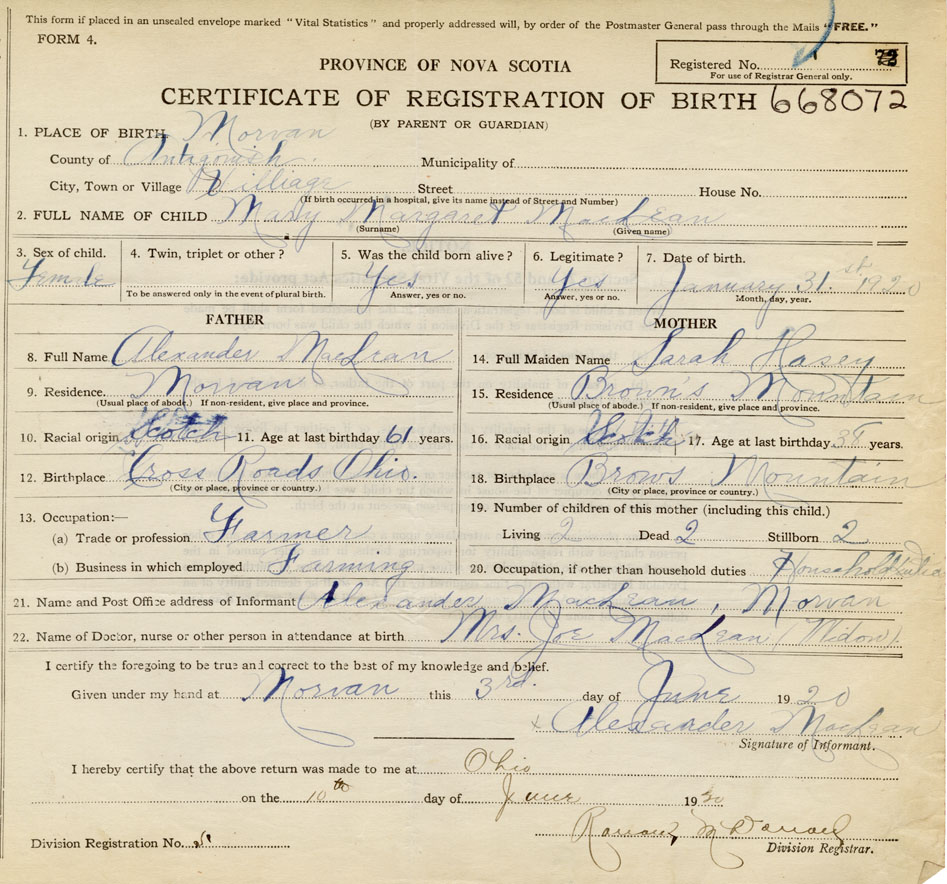 This form if placed in an unsealed envelope marked "Vital Statistics" and properly addressed will, by order of the Postmaster General pass through the Mails "FREE."
FORM 4.
Registered No.
For use of Registrar General only.
PROVINCE OF NOVA SCOTIA
CERTIFICATE OF REGISTRATION OF BIRTH 668072
(BY PARENT OR GUARDIAN)
1. PLACE OF BIRTH Morvan
County of Antigonish Municipality of
City, Town or Village Villiage Street House No.
(If birth occurred in a hospital, give its name instead of Street and Number)
2. FULL NAME OF CHILD Mary Margaret MacLean
(Surname) (Given name)
3. Sex of child. 4. Twin, triplet or other? 5. Was the child born alive? 6. Legitimate? 7. Date of birth.
Female Yes Yes January 31st 1920
To be answered only in the event of plural birth. Answer, yes or no. Answer, yes or no. Month, day, year.
FATHER
8. Full Name Alexander MacLean
9. Residence Morvan
(Usual place of abode.) If non-resident, give place and province.
10. Racial origin Scotch 11. Age at last birthday 61 years.
12. Birthplace Cross Roads Ohio.
(City or place, province or country.)
13. Occupation:—
(a) Trade or profession Farmer
(b) Business in which employed Farming
MOTHER
14. Full Maiden Name Sarah Hasey
15. Residence Brown's Mountain
(Usual place of abode.) If non-resident, give place and province.
16. Racial origin Scotch 17. Age at last birthday years.
18. Birthplace Brows Mountain
(City or place, province or country.)
19. Number of children of this mother (including this child.)
Living 2 Dead 2 Stillborn 2
20. Occupation, if other than household duties Household
21. Name and Post Office address of Informant Alexander MacLean, Morvan
22. Name of Doctor, nurse or other person in attendance at birth Mrs. Joe MacLean (Widow).
I certify the foregoing to be true and correct to the best of my knowledge and belief.
Given under my hand at Morvan this 3rd. day of June 1920
x Alexander MacLean
Signature of Informant.
I hereby certify that the above return was made to me at Ohio
on the 10th day of June 19
Division Registration No.
Division Registrar.